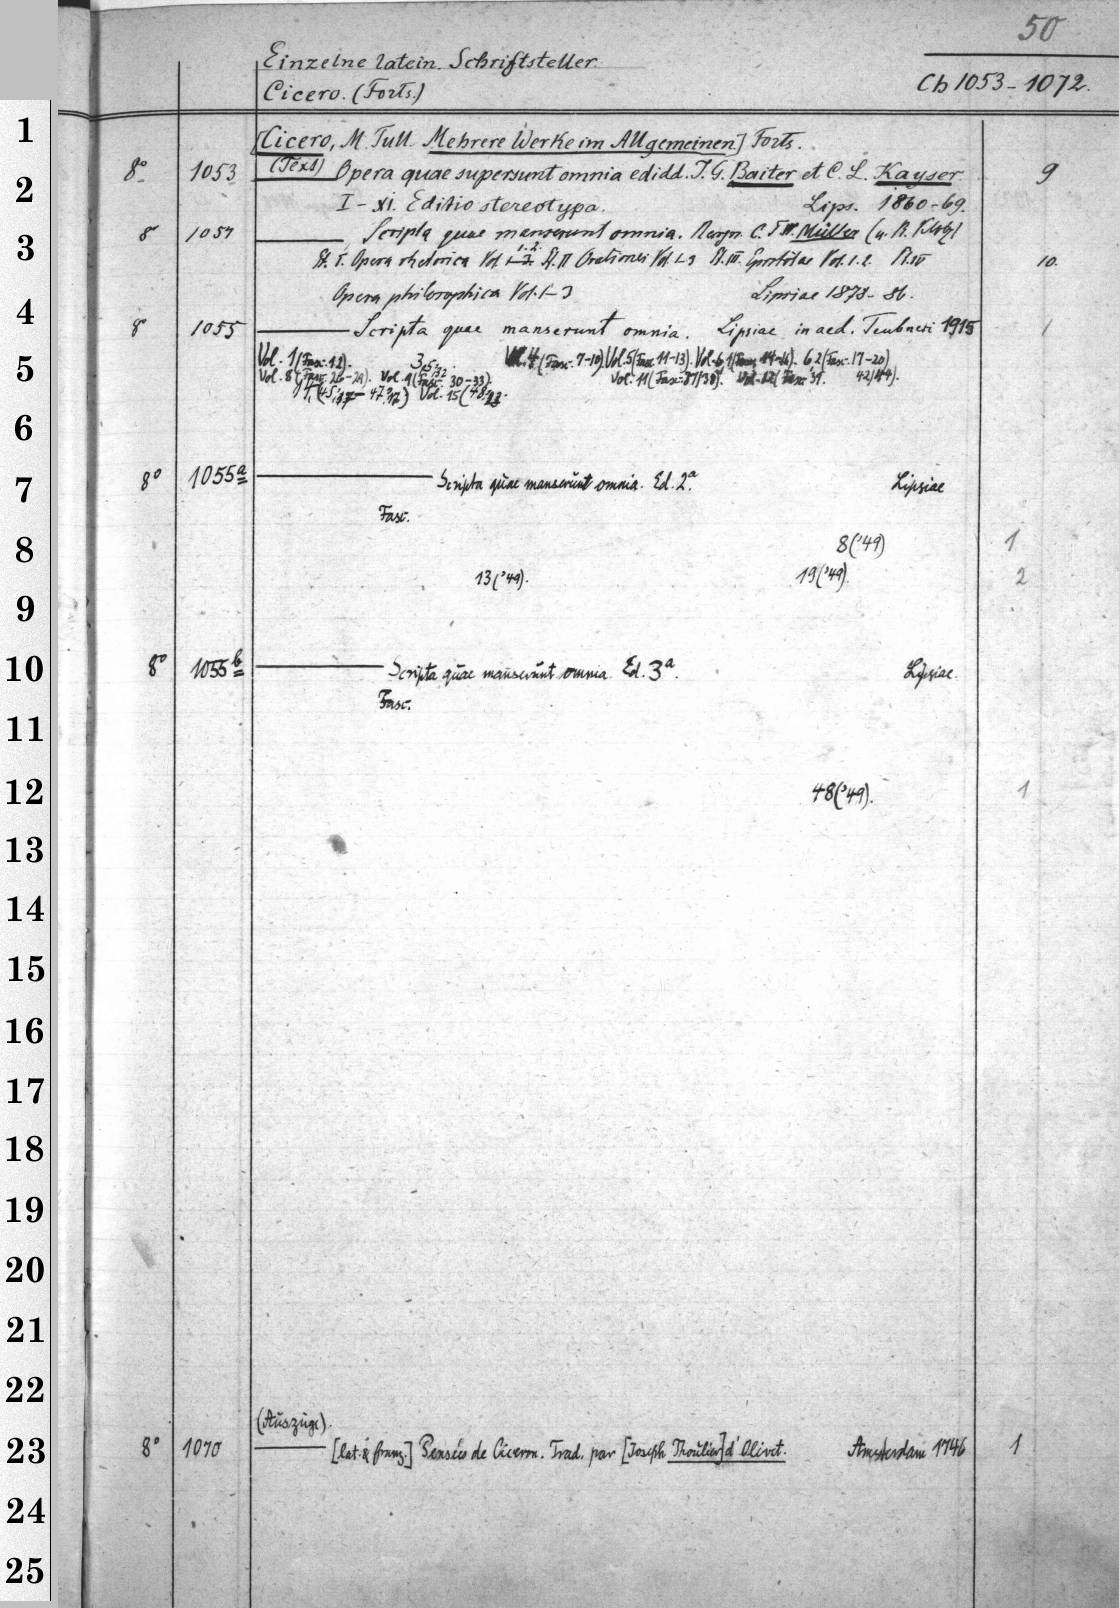 50
Einzelne latein. Schriftsteller
Cicero. (Forts.)
Cb 1053-1072.
[Cicero, M. Tull. Mehrere Werke im Allgemeinen] Forts.
8° 1053 (Text) Opera quae supersunt omnia edidd. J. G. Baiter et C. L. Kayser. 9
I-XI. Editio stereotypa. Lips. 1860-69.
8° 1054 Scripta quae manserunt omnia. Recogn. C. F. W. Müller
Pt. I. Opera rhetorica Vol. 1.2. Pt. II Orationes Vol. 1-3 Pt. III. Epistolae Vol. 1.2. Pt. IV 10.
Opera philosophica Vol. 1-3 Lipsiae 1878-86.
8° 1055 Scripta quae manserunt omnia. Lipsiae in aed. Teubneri 1915 1
Vol. 1 (Fasc. 12). Vol. 4 (Fasc. 7-10) Vol. 5 (Fasc. 11-13). Vol. 6 1 (Fasc. 14-16). 6 2 (Fasc. 17-20)
Vol. 8 (Fasc. 26-29). Vol. 9 (Fasc. 30-33). Vol. 11 (Fasc. 37/38). Vol. 12 (Fasc. 39. 42/44).
Vol. 15 (48
8° 1055a Scripta quae manserunt omnia. Ed. 2a. Lipsiae
Fasc.
8('49) 1
13('49). 19('49). 2
8° 1055b Scripta quae manserunt omnia. Ed. 3a. Lipsiae.
Fasc.
48('49). 1
(Auszüge).
8° 1070 [lat. & franz.] Pensées de Ciceron. Trad. par [Joseph Thoulier] d'Olivet. Amsterdam 1746 1
1
2
3
4
5
6
7
8
9
10
11
12
13
14
15
16
17
18
19
20
21
22
23
24
25